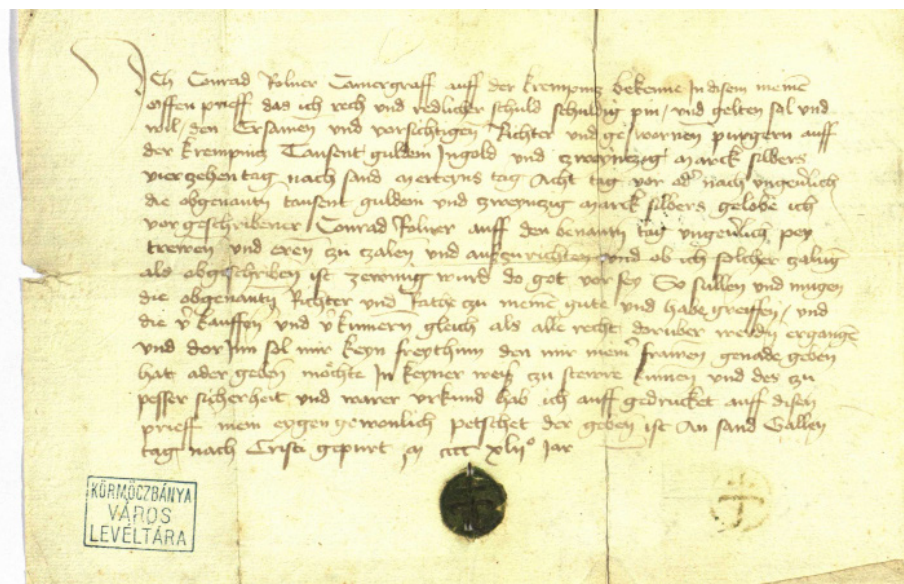 Ich Conrad Rolner Camergraff auff der Krempnicz bekenne In disem meinē
offen prieff das ich rech und redlicher schuld schuldig pin / und gelten sal und
wil / den Ersamen und vorsichtigen Richter und geswornen purgern auff
der Krempnicz Tausent guldein In gold und zweynczig marck silbers
vierzehen tag nach sand merteyns tag Acht tag vor ad' nach ungeu'lich
die obgenantn tausent guldein und zweynczig marck silbers gelobe ich
vorgeschribener Conrad Rolner auff den benantn tag ungeu'lich pey
trewen und eren zu czalen und auszurichten und ob ich solcher zalūg
als obgeschriben ist wurd do got vor sey So sullen und mugen
die obgenantn Richter und Rathe zu meinē gute und habe greiffen / und
die v'kauffen und v'kumern gleich als alle recht doruber werdn ergangē
und dor Inn sol mir keyn freythum den mir mein' frawen genade geben
hat ader geben möchte In keyner weiß zu stewre kumen und des zu
pesser sicherheit und warer urkund hab ich auff gedrucket auff disen
prieff mein eygen gewonlich petschet der geben ist An sand Gallen
tag nach Cristi gepurt m cccc xlii° Jar
KÖRMÖCZBÁNYA
VÁROS
LEVÉLTÁRA